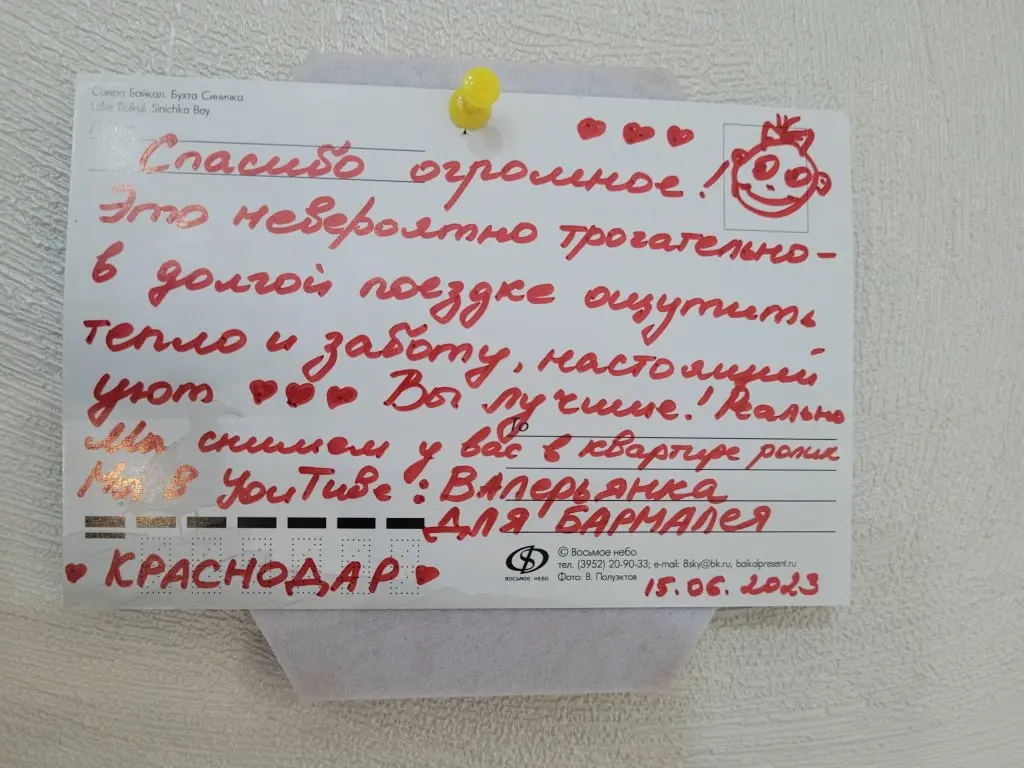 Озеро Байкал. Бухта Синичка
Lake Baikal. Sinichka Bay
Спасибо огромное!
Это невероятно трогательно-
в долгой поездке ощутить
тепло и заботу, настоящий
уют Вы лучшие! Реально
Мы снимем у вас в квартире ролик
To
Мы в YouTube: Валерьянка
для БАРМАЛЕЯ
КРАСНОДАР
ВОСЬМОЕ НЕБО
© Восьмое небо
тел. (3952) 20-90-33; e-mail: 8sky@bk.ru, baikalpresent.ru
Фото: В. Полуэктов
15.06.2023